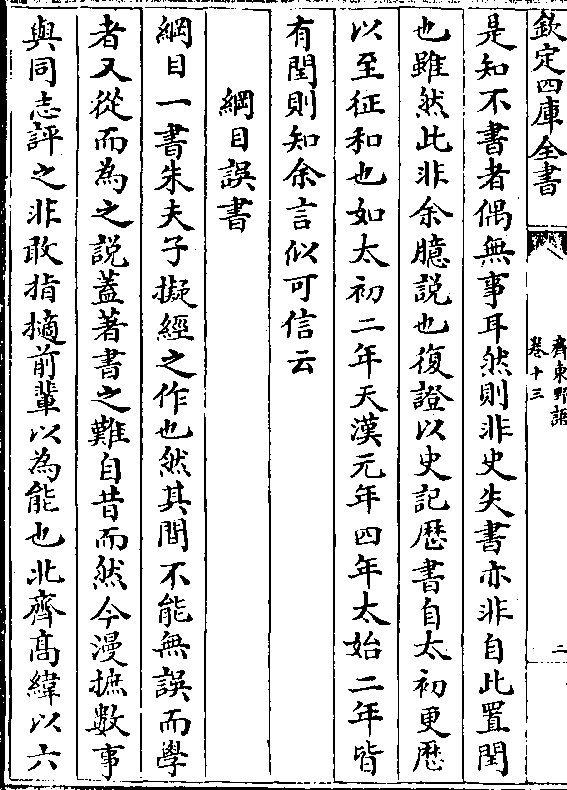 欽定四庫全書
齊東野語
卷十三
二
是知不書者偶無事耳然則非史失書亦非自此置閏
也雖然此非余臆説也復證以史記厯書自太初更厯
以至征和也如太初二年天漢元年四年太始二年皆
有閏則知余言似可信云
綱目誤書
綱目一書朱夫子擬經之作也然其間不能無誤而學
者又從而為之說蓋著書之難自昔而然今漫摭數事
與同志評之非敢指擿前輩以為能也北齊髙緯以六